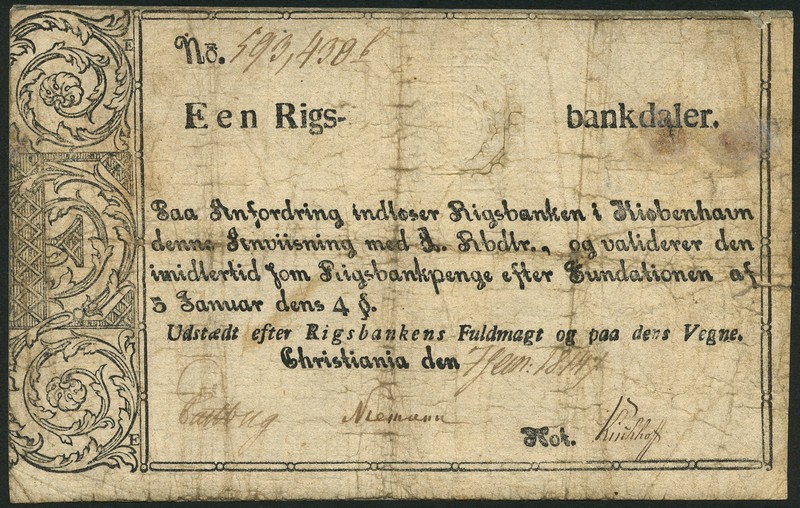 No. 593,430 b
Een Rigs- bankdaler.
Paa Anfordring indløser Rigsbanken i Kiøbenhavn
denne Anviisning med 1. Rbdlr., og validerer den
imidlertid som Rigsbankpenge efter Fundationen af
5 Januar dens 4 §.
Udstædt efter Rigsbankens Fuldmagt og paa dens Vegne.
Christiania den 7 Jan: 1814
Niemann
Not. Kirchhoff
E
E